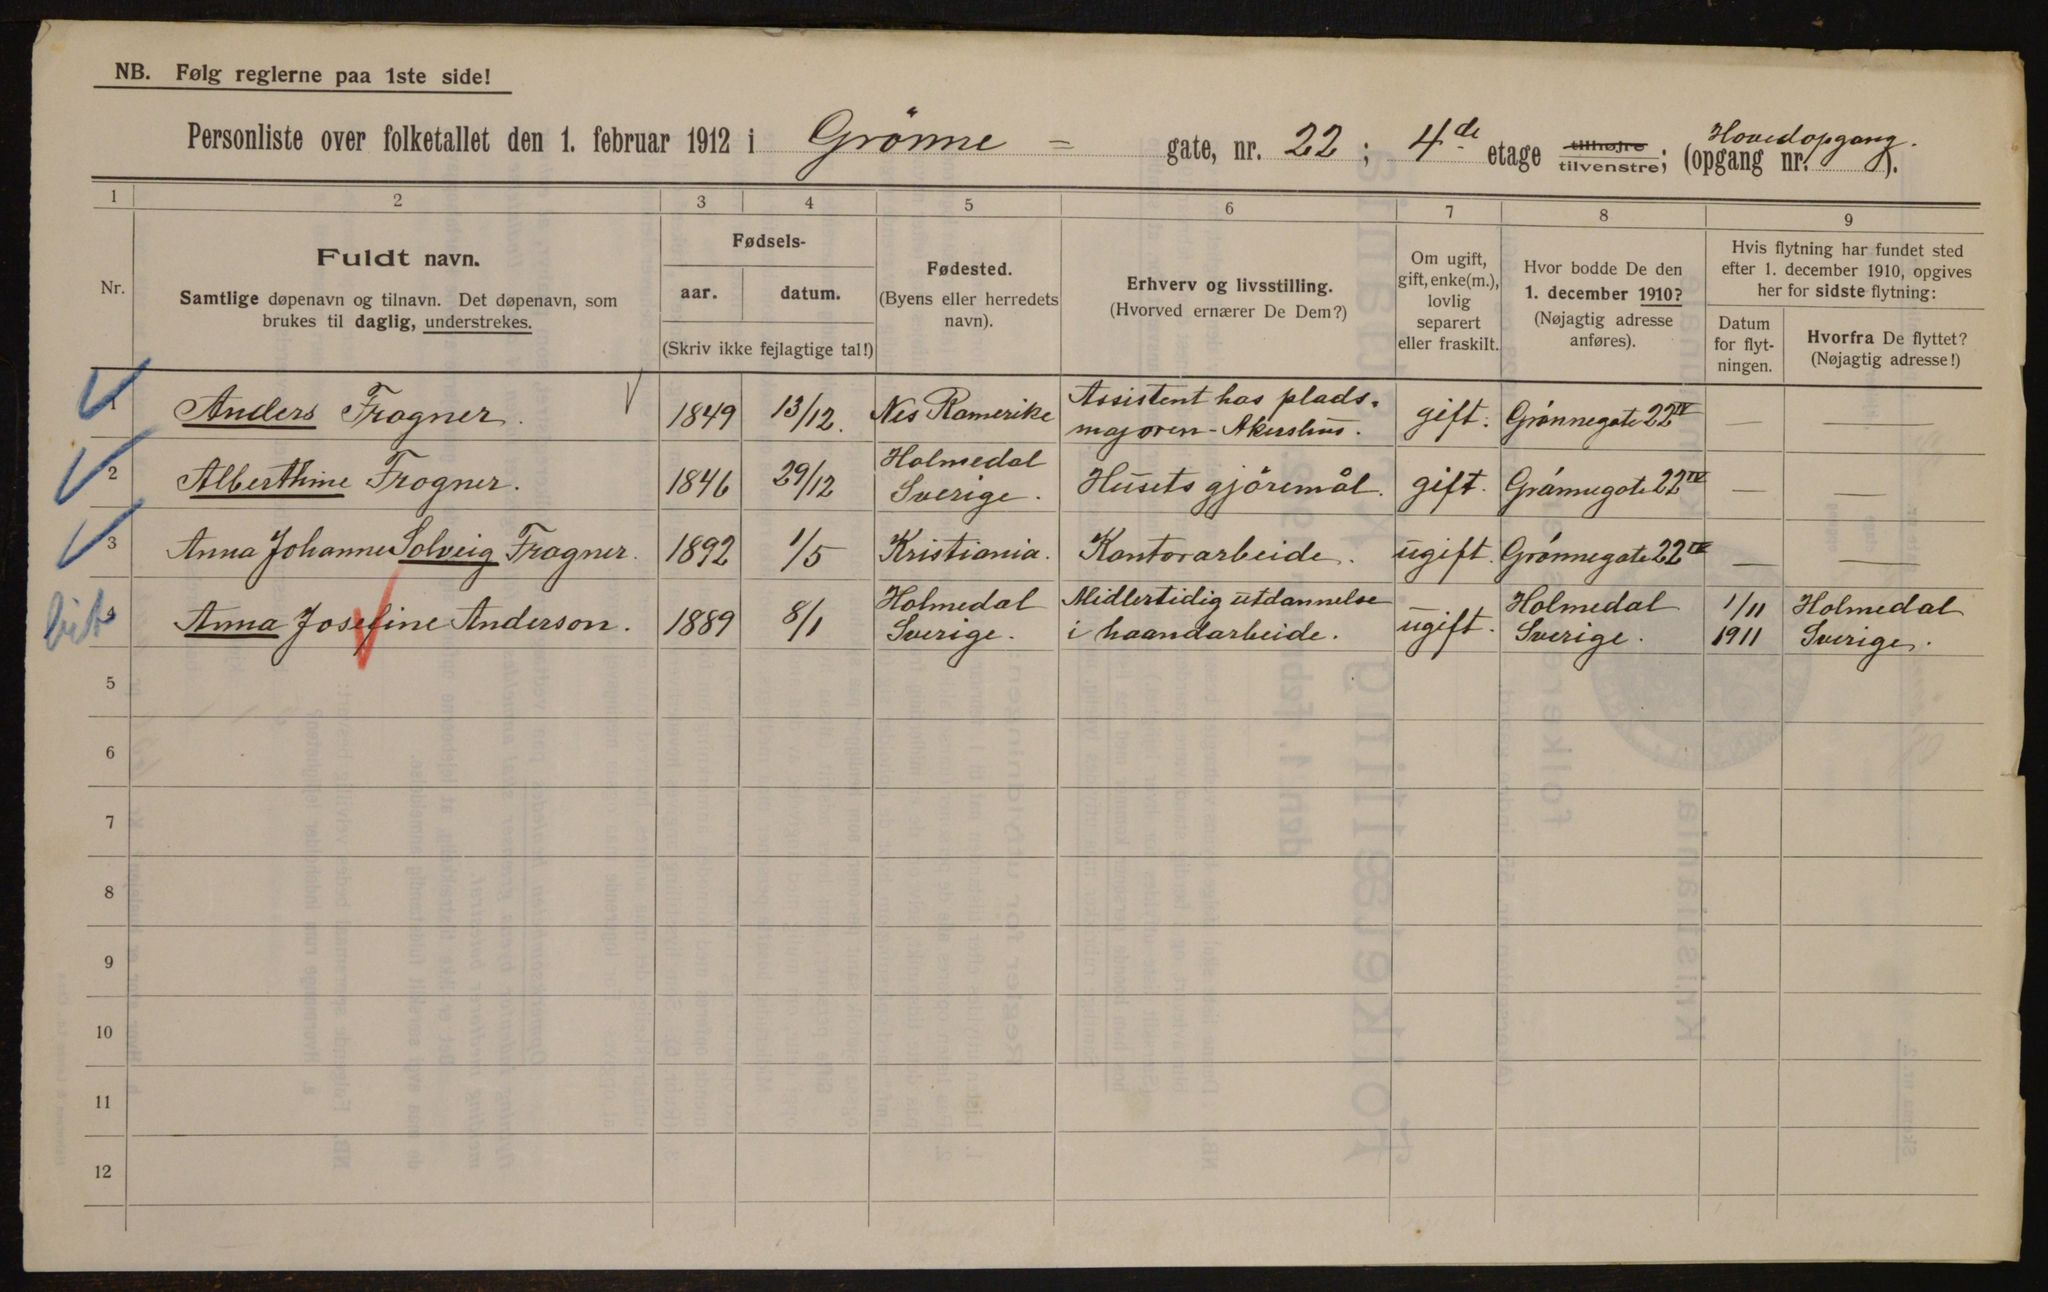 NB. Følg reglerne paa 1ste side!
Personliste over folketallet den 1. februar 1912 i Grönne = gate, nr. 22 ; 4de etage tilhøjre tilvenstre; (opgang nr. Hovedopgang.).
1 2 3 4 5 6 7 8 9
Nr.
Fuldt navn.
Samtlige døpenavn og tilnavn. Det døpenavn, som
brukes til daglig, understrekes.
Fødsels-
aar. datum.
(Skriv ikke fejlagtige tal!)
Fødested.
(Byens eller herredets
navn).
Erhverv og livsstilling.
(Hvorved ernærer De Dem?)
Om ugift,
gift, enke(m.),
lovlig
separert
eller fraskilt.
Hvor bodde De den
1. december 1910?
(Nøjagtig adresse
anføres).
Hvis flytning har fundet sted
efter 1. december 1910, opgives
her for sidste flytning:
Datum
for flyt-
ningen.
Hvorfra De flyttet?
(Nøjagtig adresse!)
1 Anders Frogner. 1849 13/12. Nes Romerike Assistent hos plads-
majoren - Akershus. gift. Grönnegate 22 IV — —
2 Alberthine Frogner. 1846 29/12 Holmedal
Sverige. Husets gjöremål. gift. Grönnegate 22 IV — —
3 Anna Johanne Solveig Frogner. 1892 1/5 Kristiania. Kontorarbeide. ugift. Grönnegate 22 IV — —
4 Anna Josefine Anderson. 1889 8/1 Holmedal
Sverige. Midlertidig utdannelse
i haandarbeide. ugift. Holmedal
Sverige. 1/11
1911 Holmedal
Sverige.
5
6
7
8
9
10
11
12